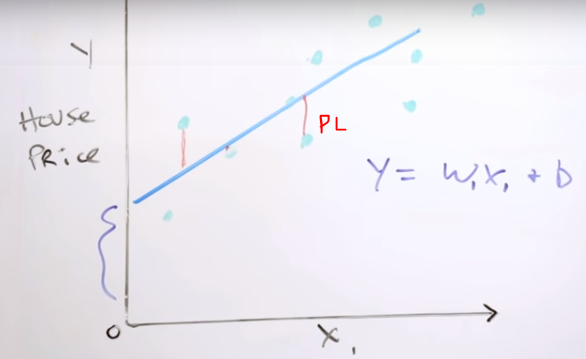 Y
HOUSE
PRICE
PL
Y = W₁X₁ + b
0
X₁